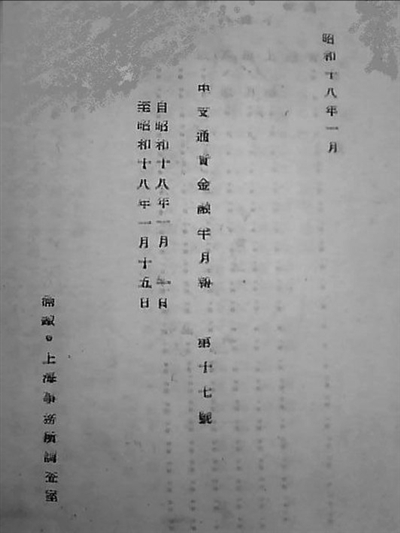 昭和十八年一月
中支通貨金融半月報 第十七號
自昭和十八年一月 一日
至昭和十八年一月十五日
上海事務所調査室